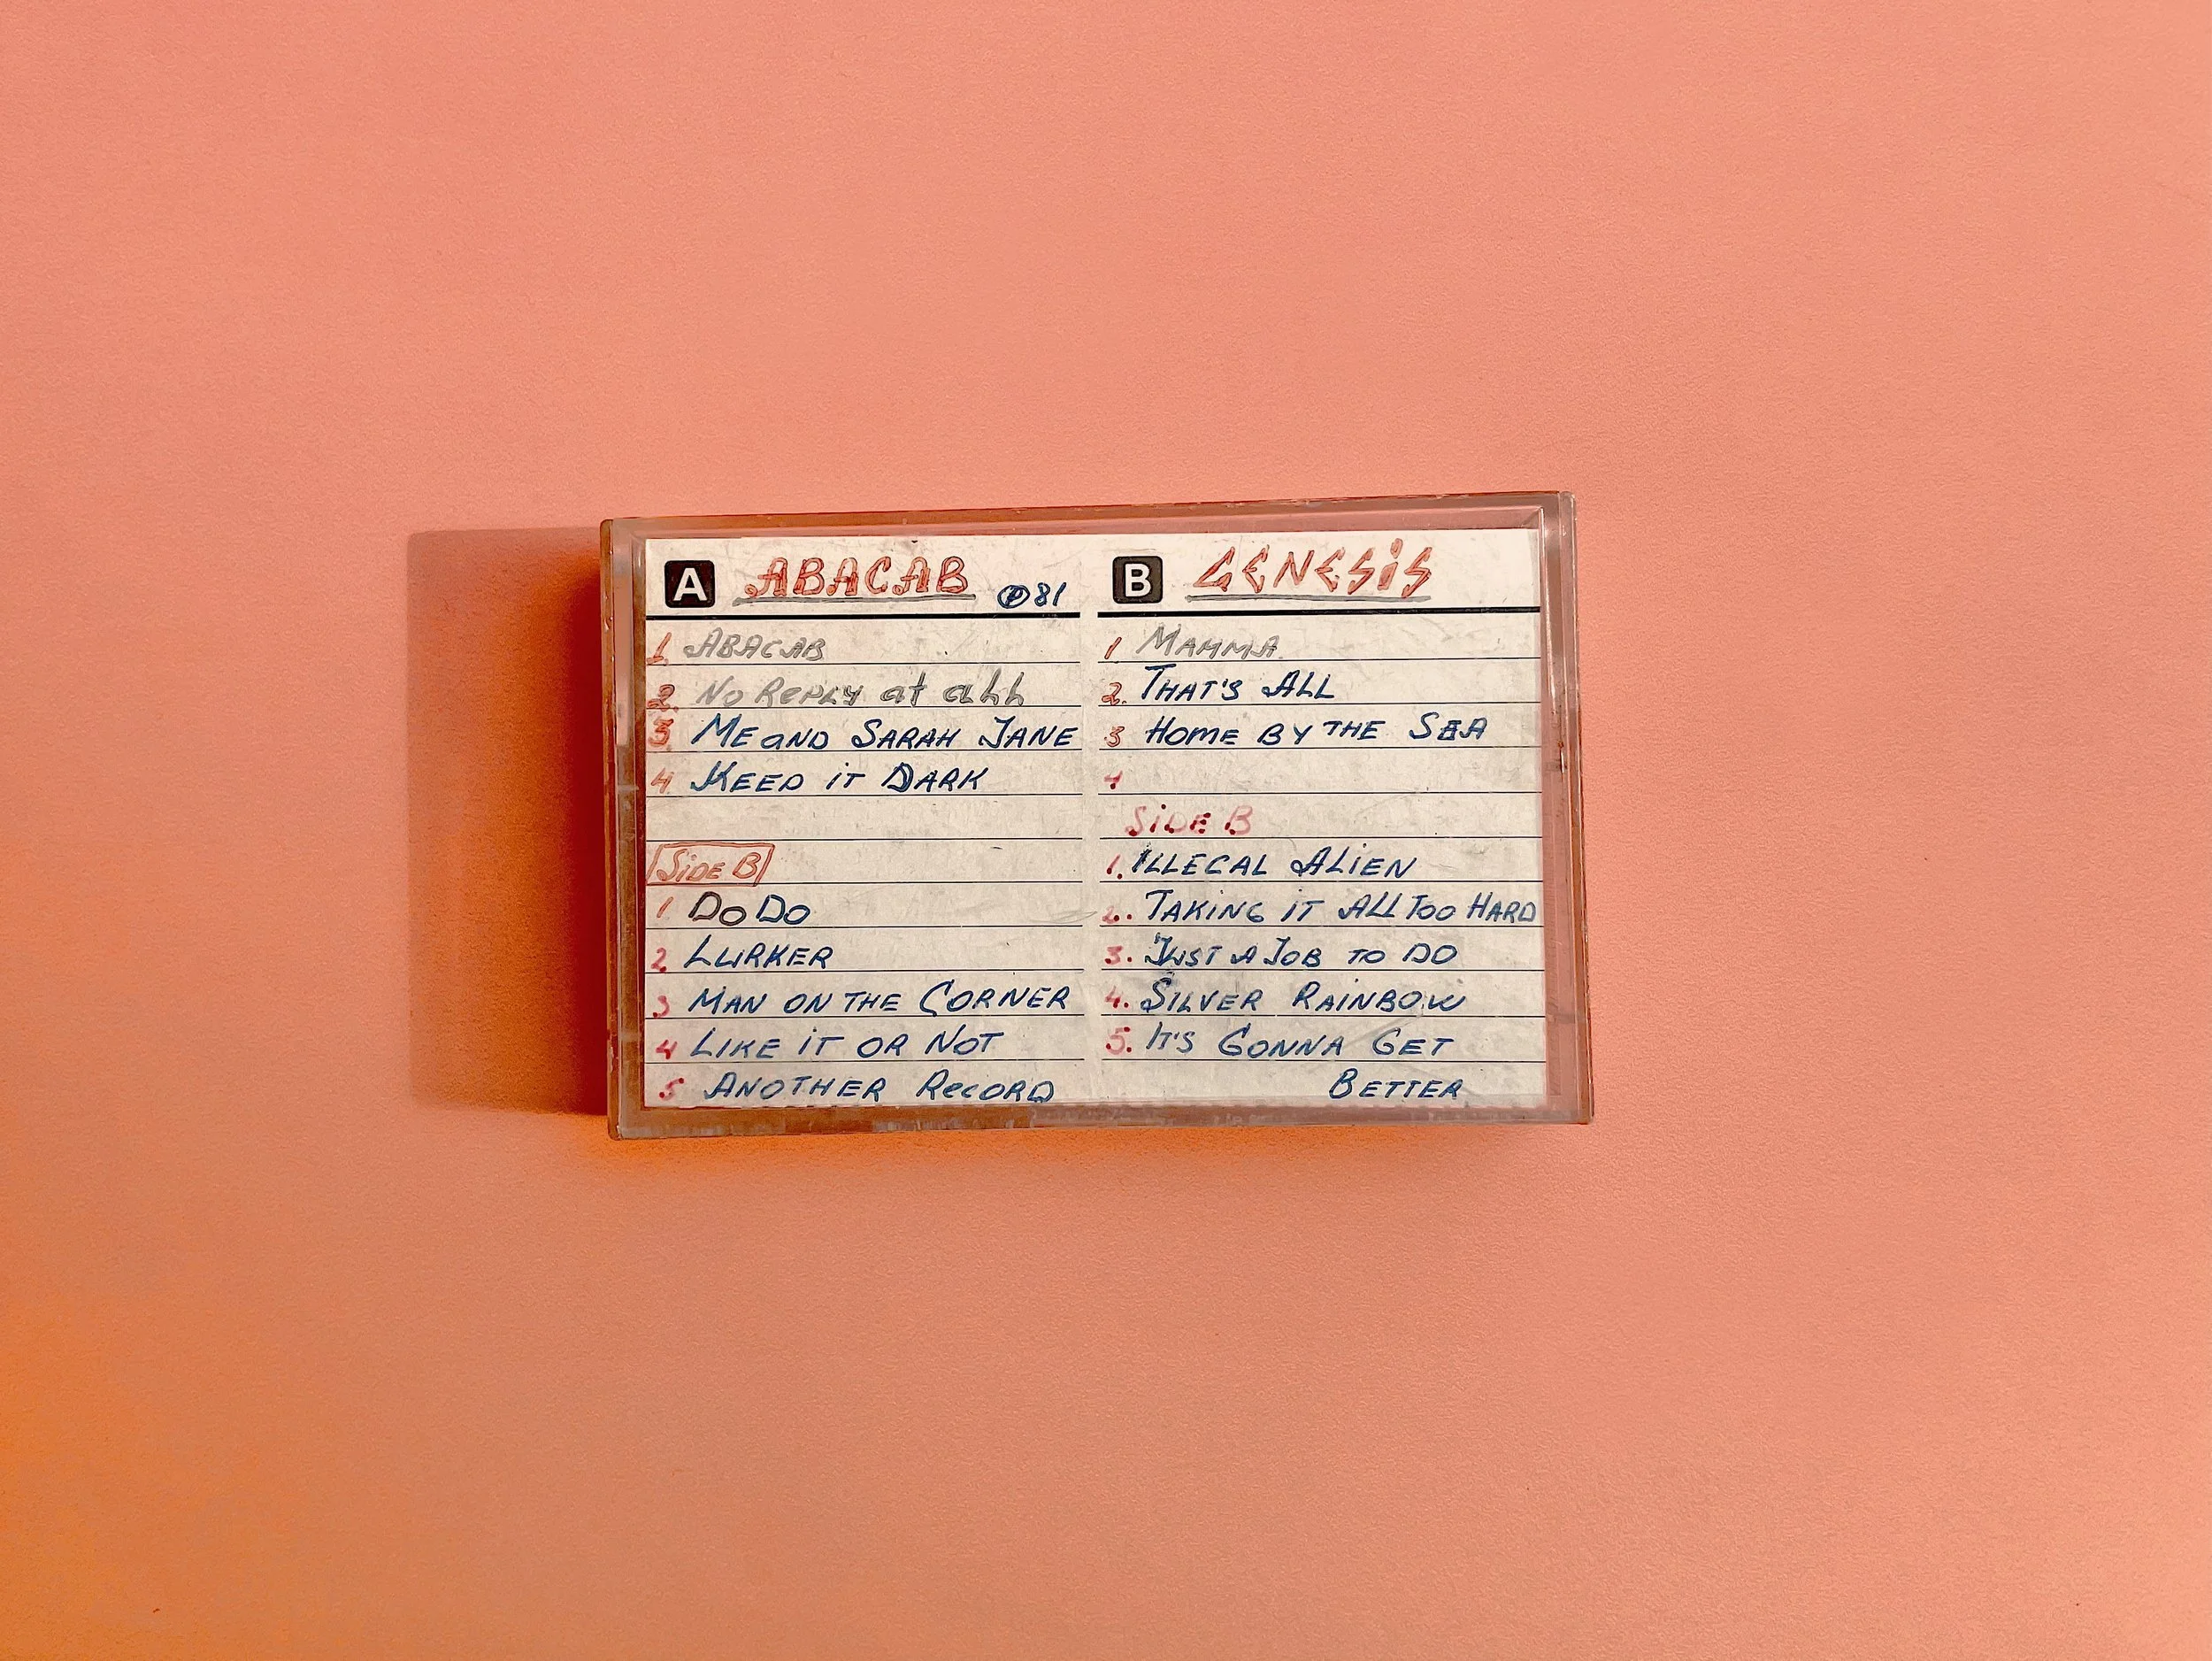 A ABACAB ℗81
1 ABACAB
2. No Reply at all
3 ME aND SARAH JANE
4 KEEP iT DARK
SiDE B
1 DoDo
2 LURKER
3 MAN ON THE CORNER
4 LIKE iT OR NOT
5 ANOTHER RecORD
B GENESiS
1 MAMMA
2. THAT'S ALL
3 HOME BY THE SEA
4
SiDE B
1. ILLEGAL ALiEN
2. TAKiNG iT ALL TOO HARD
3. JUST A JOB TO DO
4. SILVER RAiNBOW
5. IT'S GONNA GET
BETTER